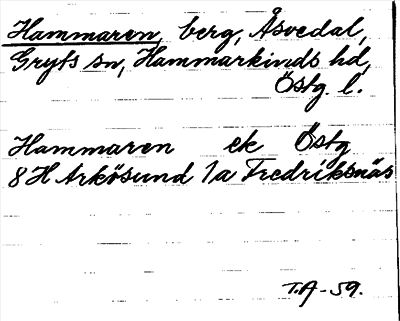 Hammaren, berg, Åsvedal,
Gryts sn, Hammarkinds hd,
Östg. l.
Hammaren ek Östg
8H Arkösund 1a Fredriksnäs
T.A-59.